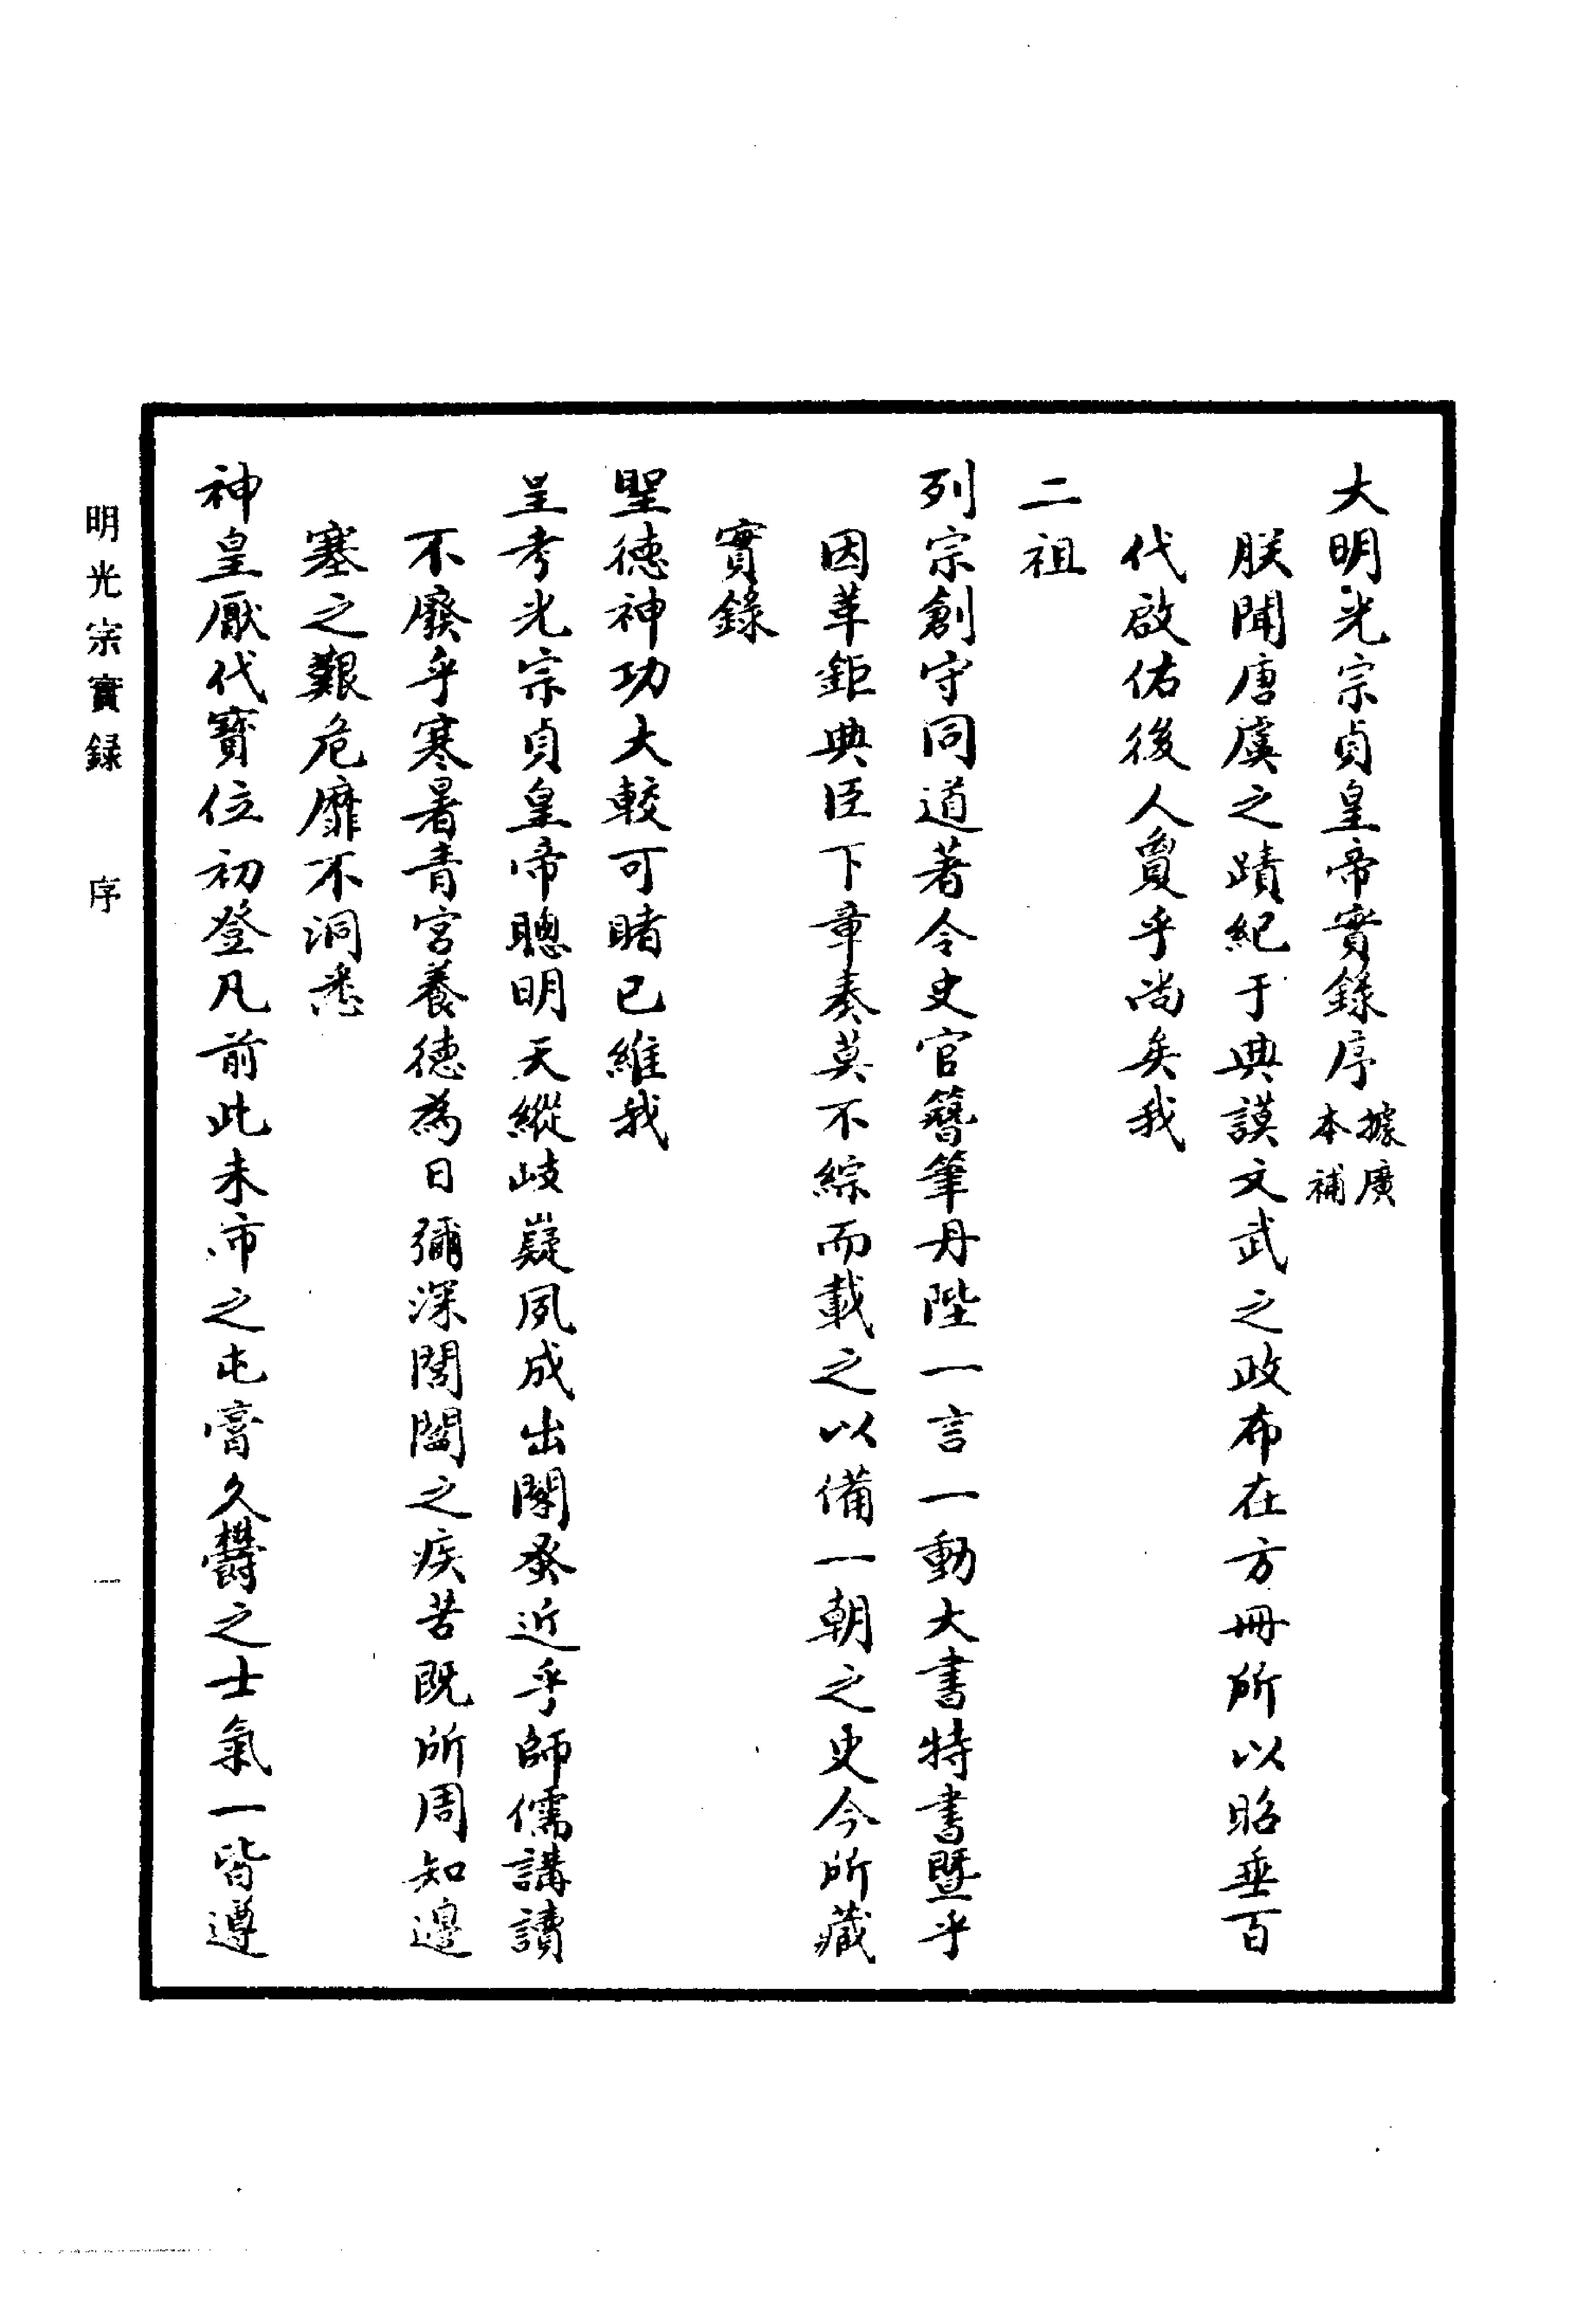 大明光宗貞皇帝實錄序據廣本補
朕聞唐虞之蹟紀于典謨文武之政布在方冊所以昭垂百
代啟佑後人敻乎尚矣我
二祖
列宗創守同道著令史官簪筆丹陛一言一動大書特書暨乎
因革鉅典臣下章奏莫不綜而載之以備一朝之史今所藏
實錄
聖德神功大較可睹已維我
皇考光宗貞皇帝聰明天縱岐嶷夙成出閣蚤近乎師儒講讀
不廢乎寒暑青宮養德為日彌深閭閻之疾苦既所周知邊
塞之艱危靡不洞悉
神皇厭代寶位初登凡前此未沛之屯膏久欝之士氣一皆遵
明光宗實録 序 一